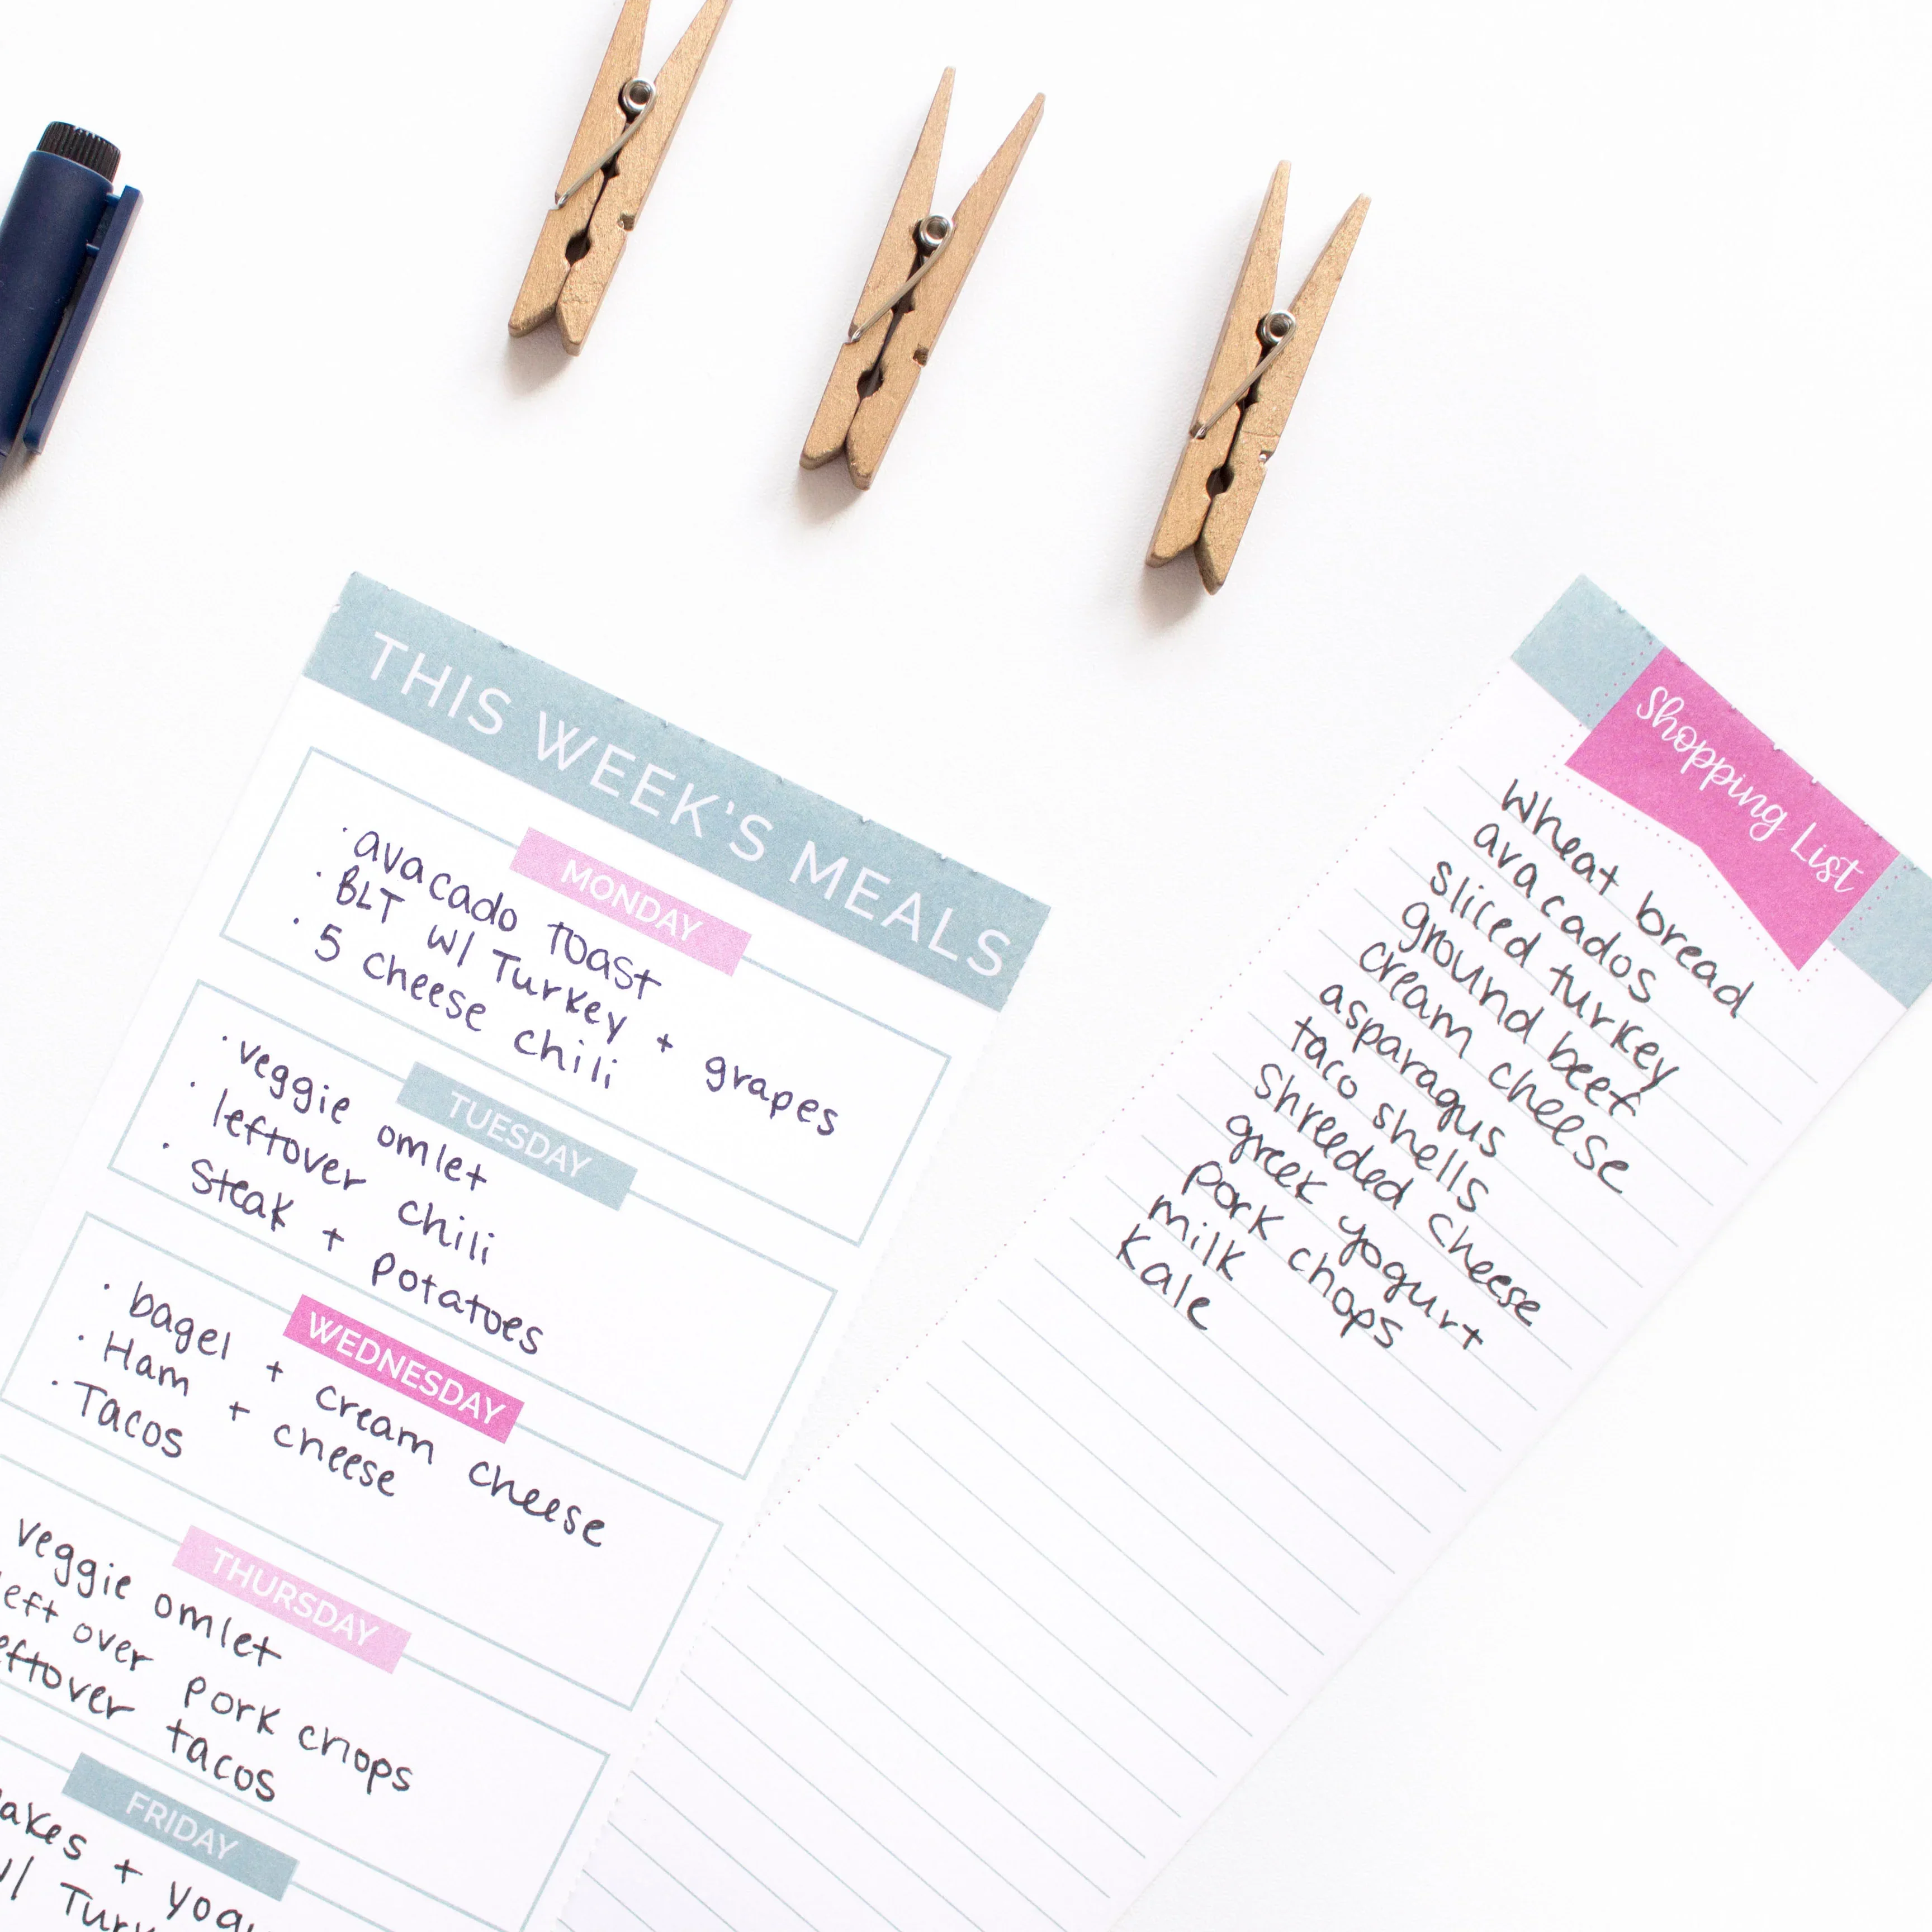 THIS WEEK'S MEALS
MONDAY
· avacado toast
· BLT w/ Turkey + grapes
· 5 cheese chili
TUESDAY
· veggie omlet
· leftover chili
· Steak + potatoes
WEDNESDAY
· bagel + cream cheese
· Ham + cheese
· Tacos
THURSDAY
veggie omlet
left over pork chops
leftover tacos
FRIDAY
+
Shopping List
wheat bread
avacados
sliced turkey
ground beef
cream cheese
asparagus
taco shells
shreeded cheese
greek yogurt
pork chops
milk
Kale